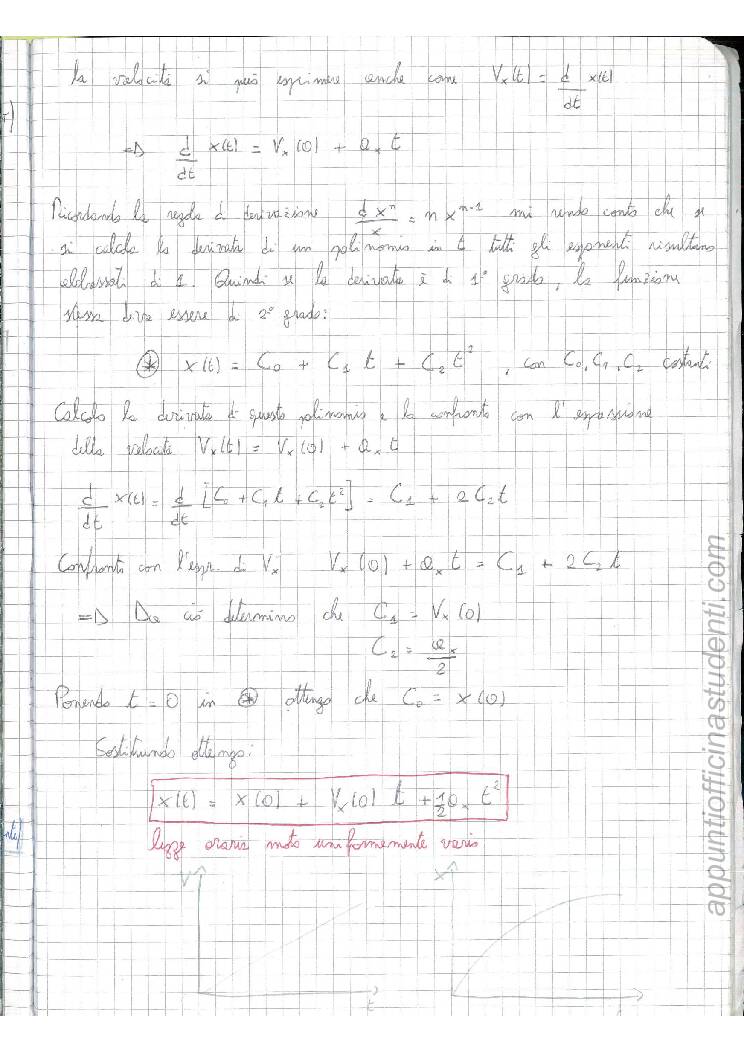 la velocità si può esprimere anche come Vx(t) = d/dt x(t)
=D d/dt x(t) = Vx(0) + ax t
Ricordando la regola di derivazione d x^n / x = n x^(n-1) mi rendo conto che se
si calcola la derivata di un polinomio in t tutti gli esponenti risultano
abbassati di 1. Quindi se la derivata è di 1° grado, la funzione
stessa deve essere di 2° grado:
⊛ x(t) = C0 + C1 t + C2 t², con C0, C1, C2 costanti
Calcolo la derivata di questo polinomio e la confronto con l'espressione
della velocità Vx(t) = Vx(0) + ax t
d/dt x(t) = d/dt [C0 + C1 t + C2 t²] = C1 + 2 C2 t
Confronto con l'espr. di Vx Vx(0) + ax t = C1 + 2 C2 t
=D Da ciò determino che C1 = Vx(0)
C2 = ax/2
Ponendo t = 0 in ⊛ ottengo che C0 = x(0)
Sostituendo ottengo:
x(t) = x(0) + Vx(0) t + 1/2 ax t²
legge oraria moto uniformemente vario
V x
t
appuntiofficinastudenti.com